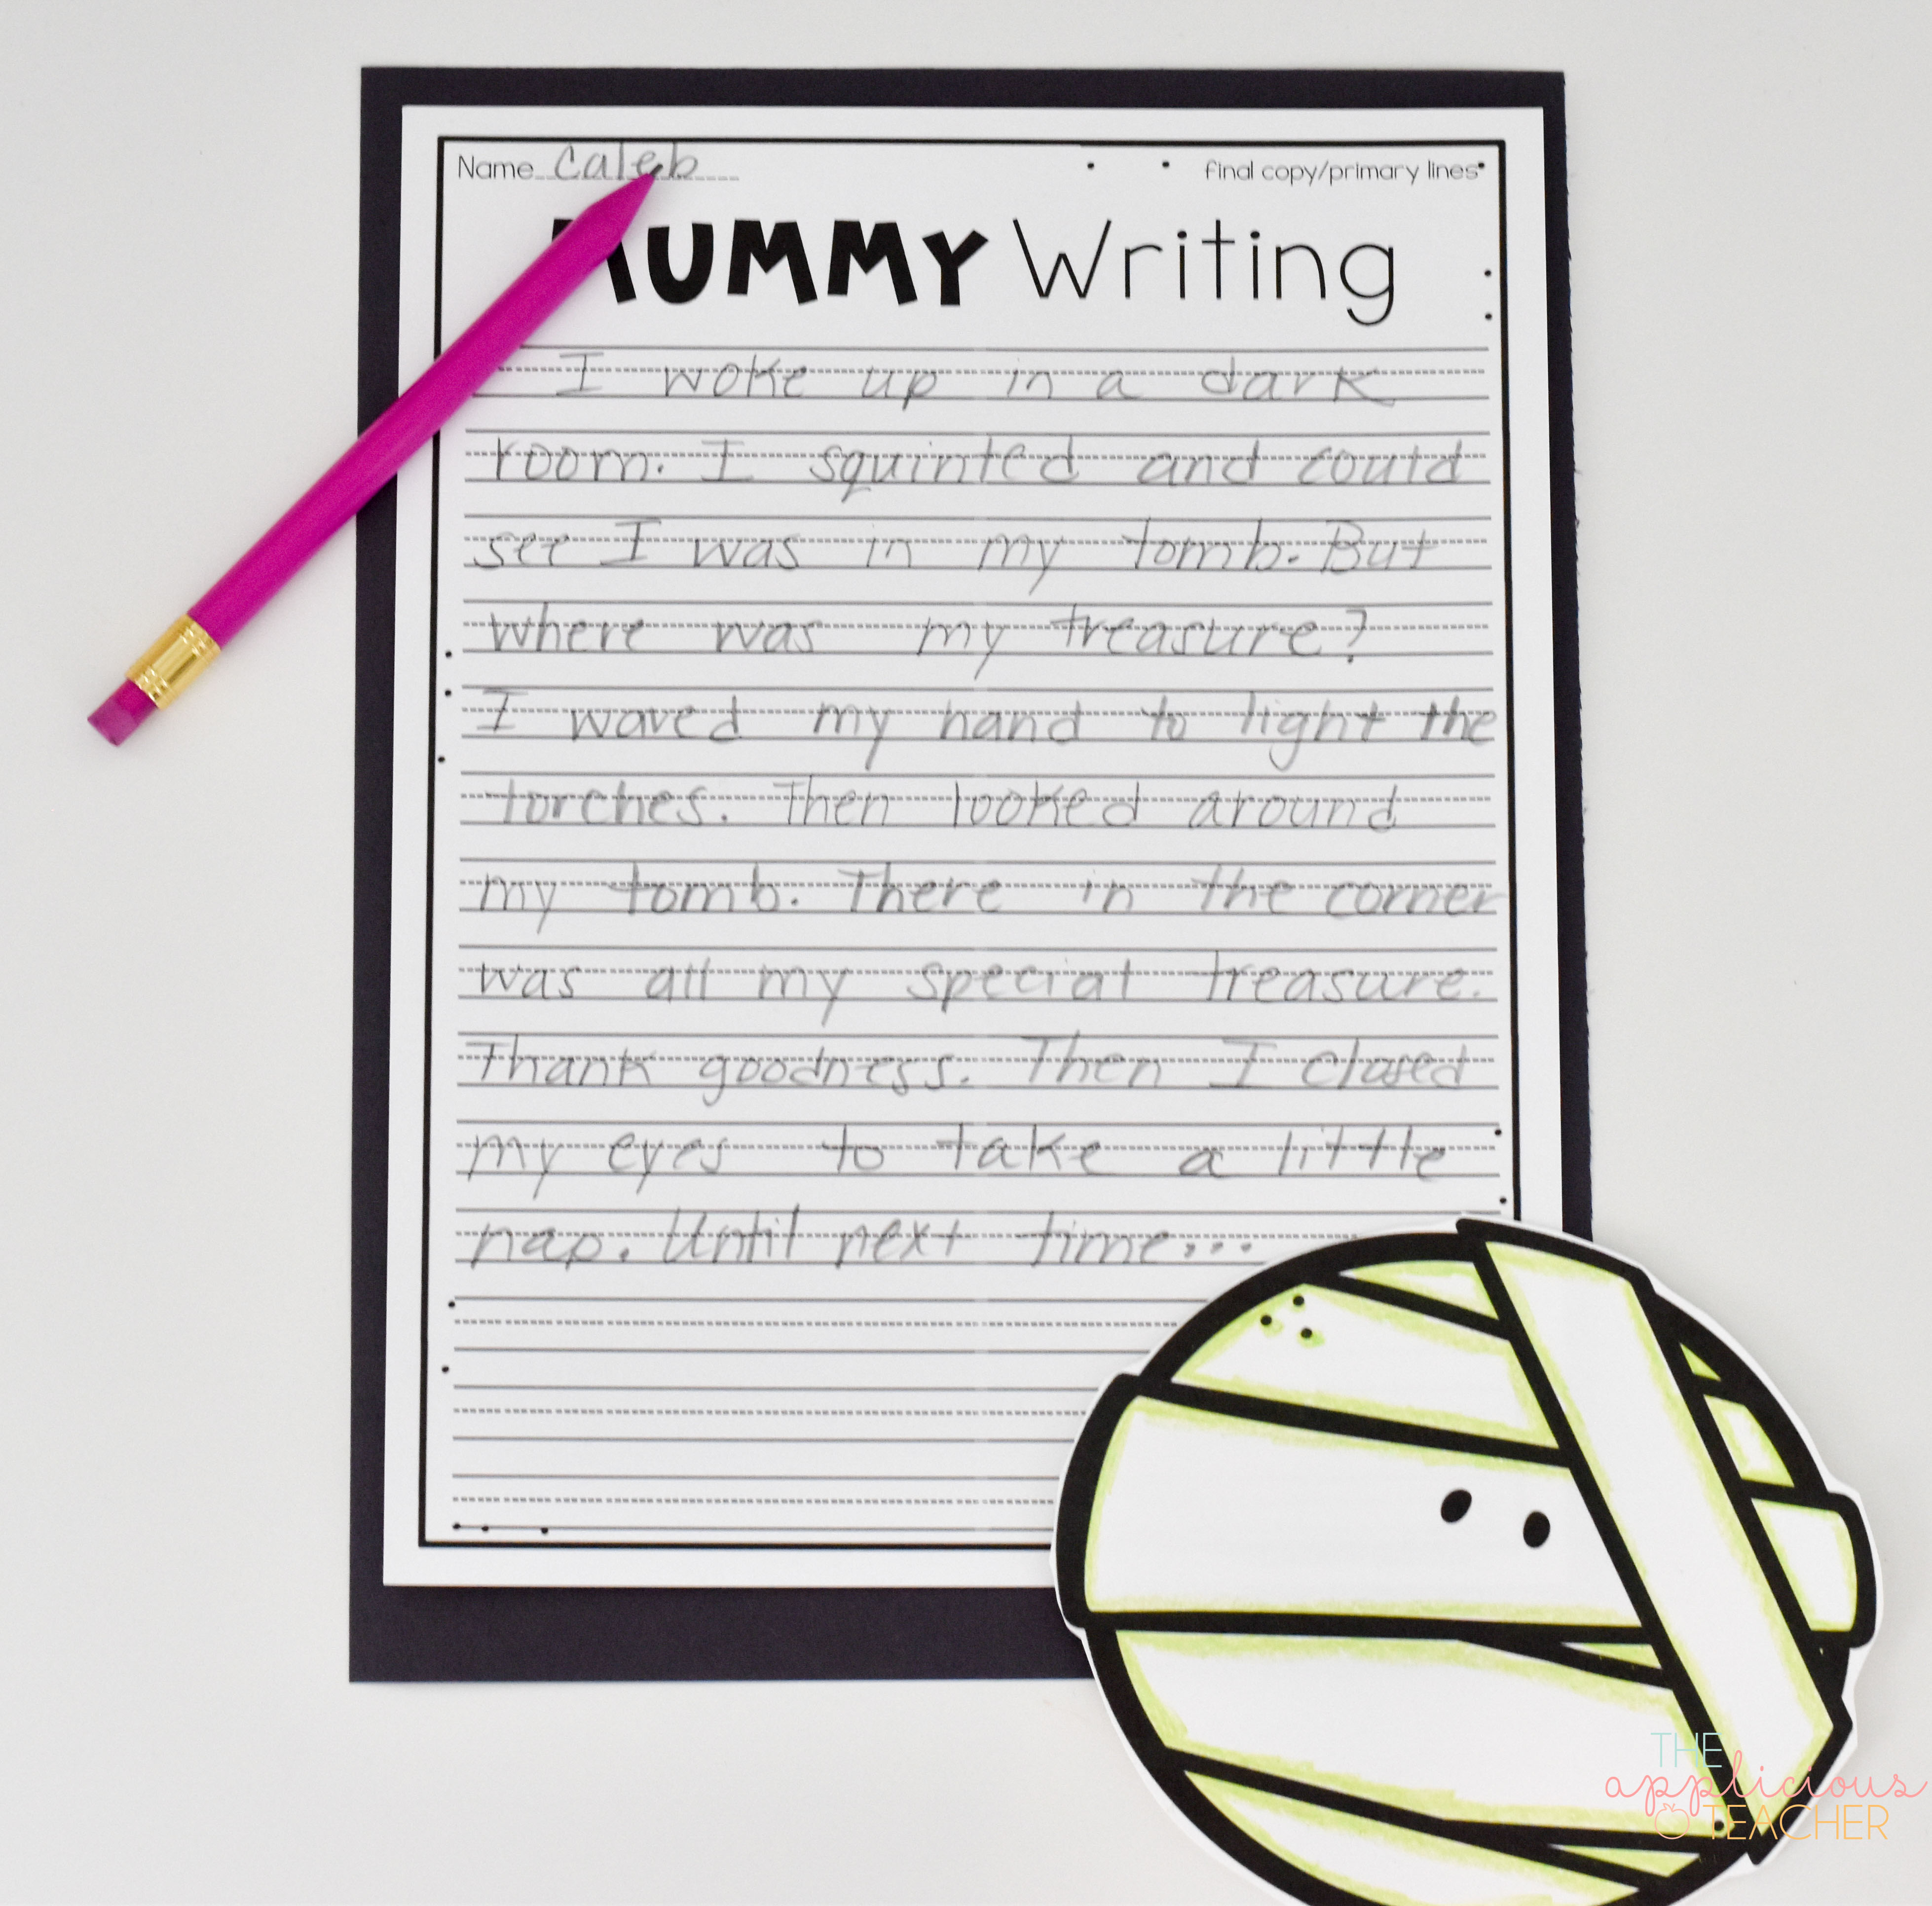 Name Caleb
final copy/primary lines
MUMMY Writing
I woke up in a dark
room. I squinted and could
see I was in my tomb. But
where was my treasure?
I waved my hand to light the
torches. Then looked around
my tomb. There in the corner
was all my special treasure.
Thank goodness. Then I closed
my eyes to take a little
nap. Until next time...
THE
applicious
TEACHER